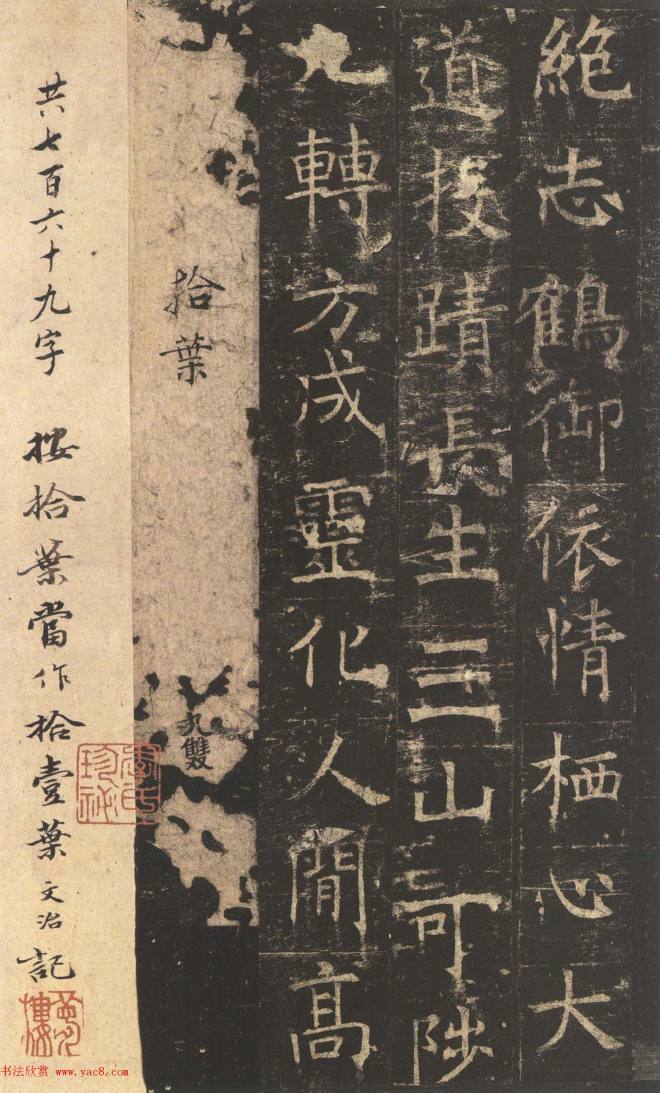 絶志鶴御依情栖心大
道投蹟長生三山可陟
九轉方成靈化人閒高
拾葉
九雙
共七百六十九字 按拾葉當作拾壹葉 文治記
珍祕
樓
书法欣赏 www.yac8.com